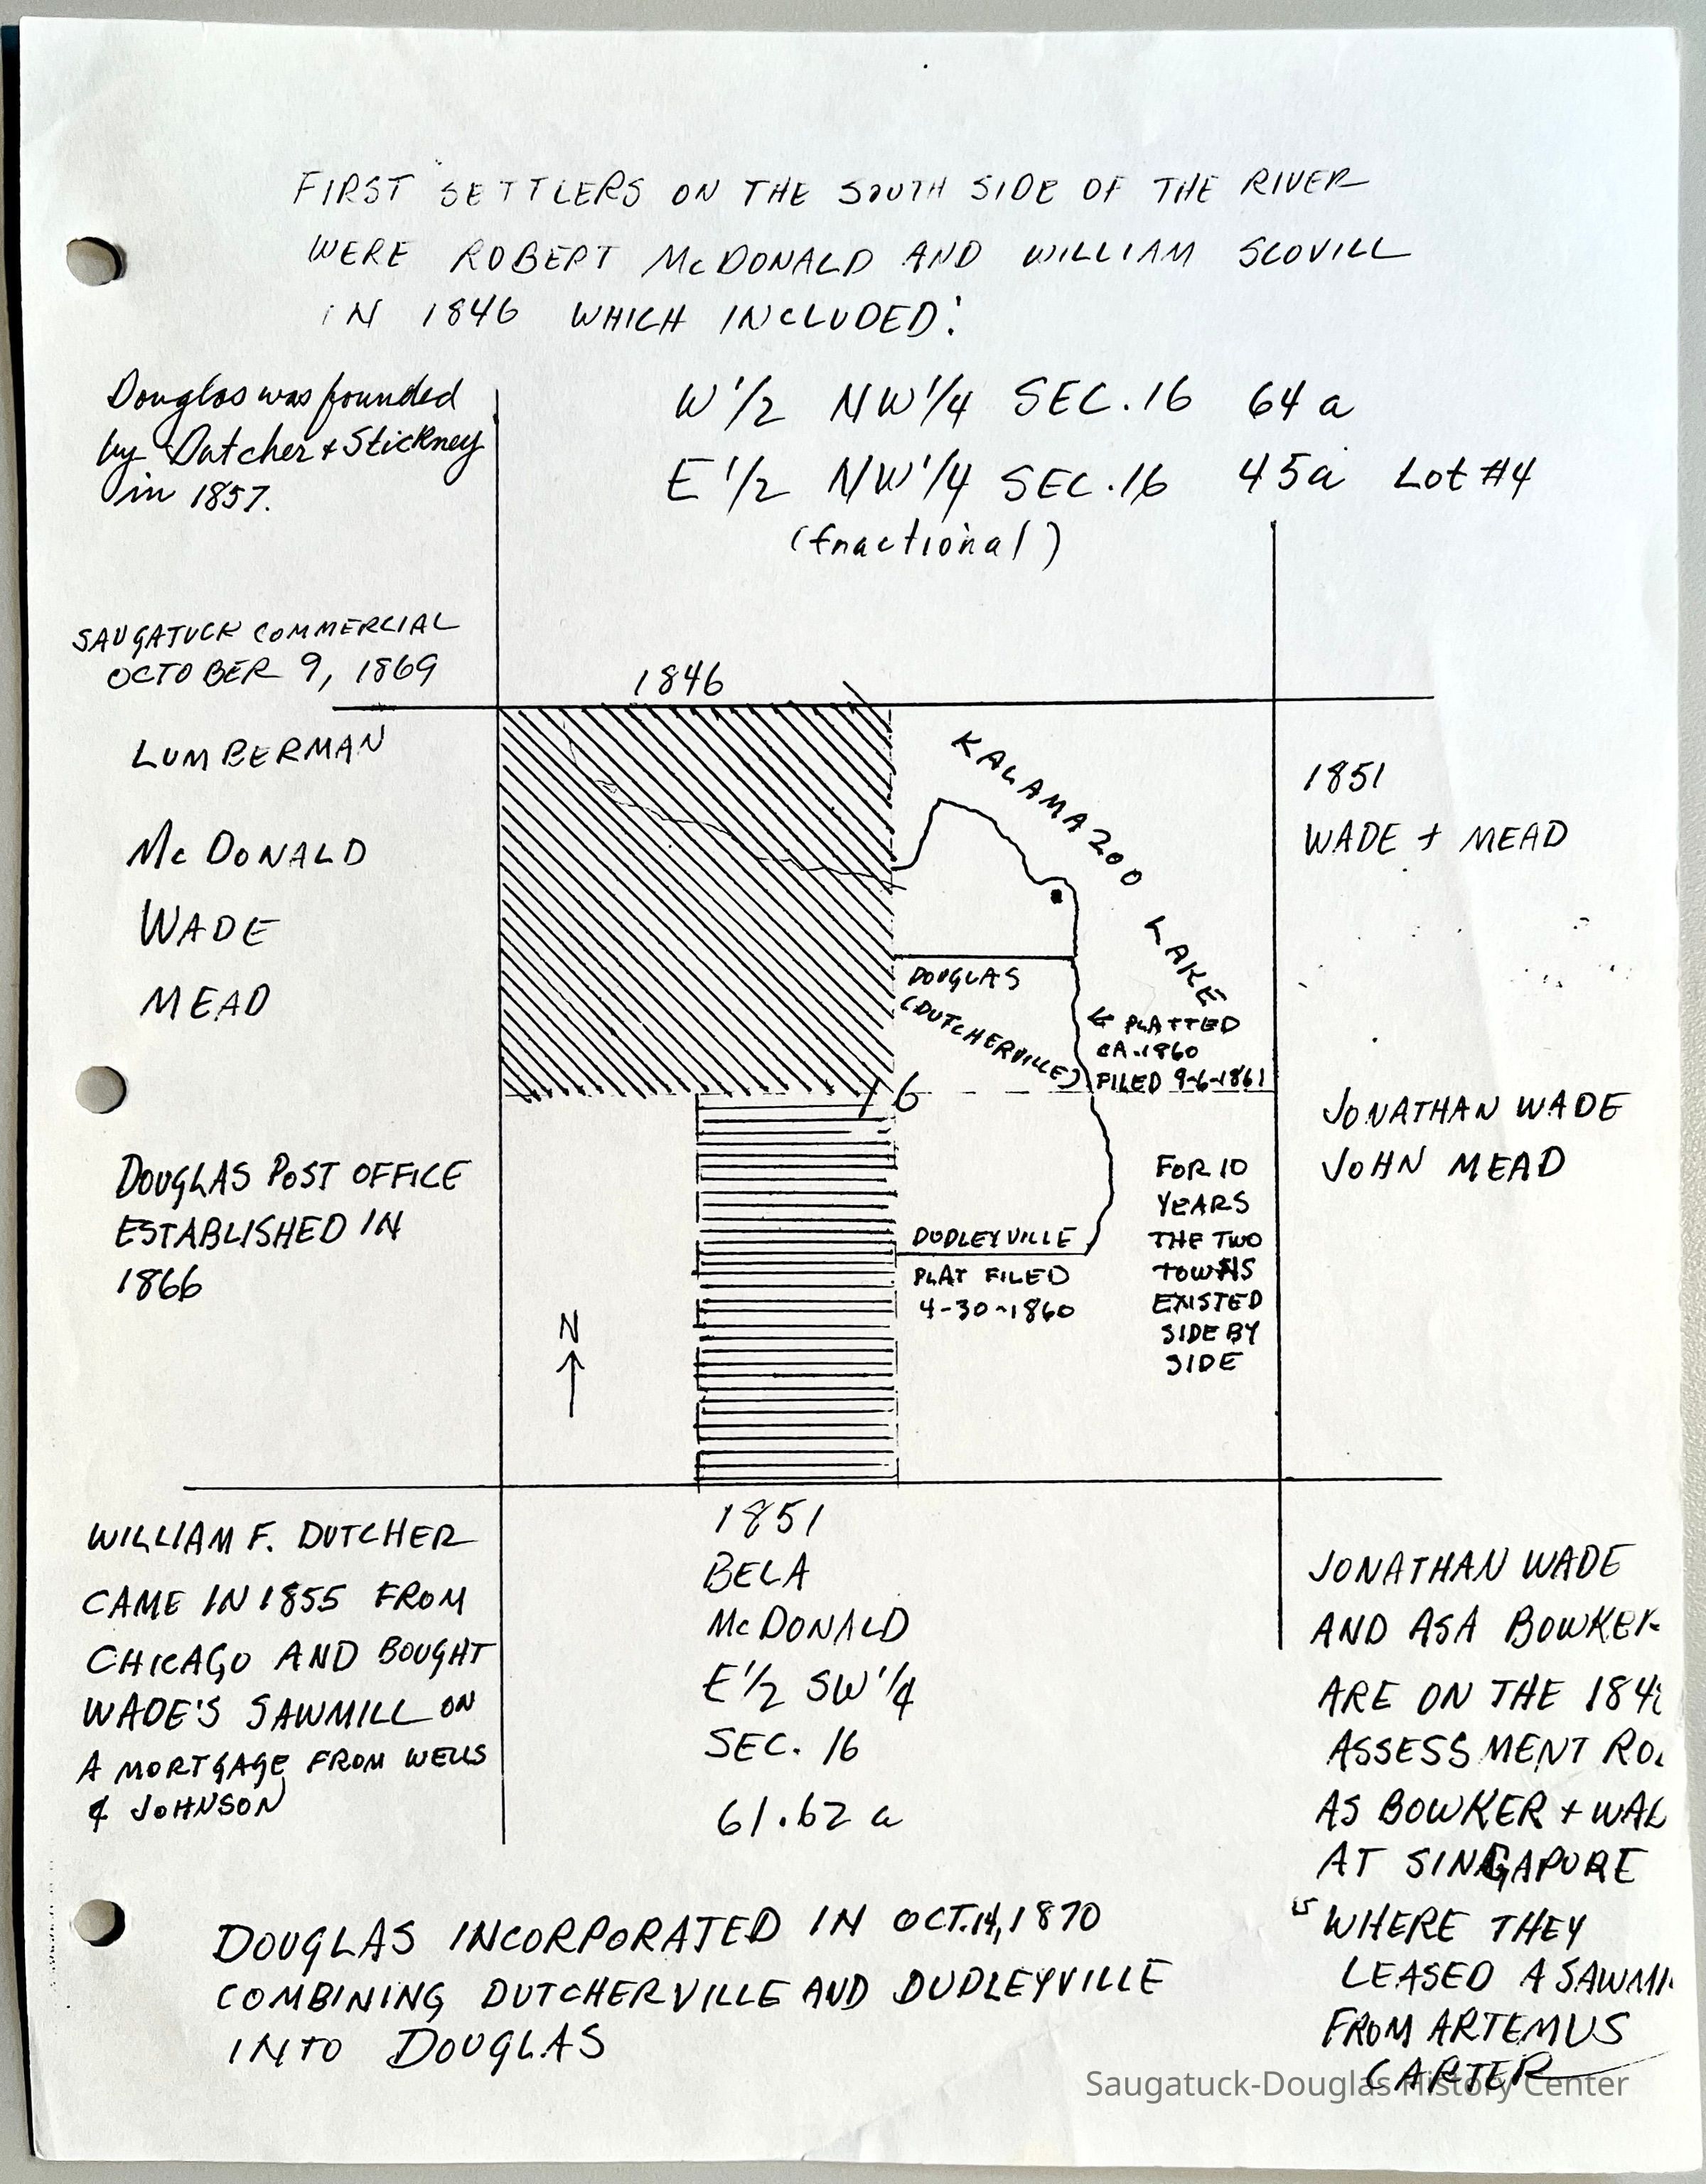 FIRST SETTLERS ON THE SOUTH SIDE OF THE RIVER
WERE ROBERT McDONALD AND WILLIAM SCOVILL
IN 1846 WHICH INCLUDED:
W 1/2 NW 1/4 SEC. 16 64 a
E 1/2 NW 1/4 SEC. 16 45a Lot #4
(fractional)
Douglas was founded
by Dutcher + Stickney
in 1857.
SAUGATUCK COMMERCIAL
OCTOBER 9, 1869
LUMBERMAN
McDONALD
WADE
MEAD
DOUGLAS POST OFFICE
ESTABLISHED IN
1866
1846
KALAMAZOO LAKE
DOUGLAS
(DUTCHERVILLE)
← PLATTED
CA. 1860
FILED 9-6-1861
16
DUDLEYVILLE
PLAT FILED
4-30-1860
FOR 10
YEARS
THE TWO
TOWNS
EXISTED
SIDE BY
SIDE
N
1851
WADE + MEAD
JONATHAN WADE
JOHN MEAD
WILLIAM F. DUTCHER
CAME IN 1855 FROM
CHICAGO AND BOUGHT
WADE'S SAWMILL ON
A MORTGAGE FROM WELLS
& JOHNSON
1851
BELA
McDONALD
E 1/2 SW 1/4
SEC. 16
61.62 a
JONATHAN WADE
AND ASA BOWKER
ARE ON THE 184
ASSESSMENT RO
AS BOWKER + WA
AT SINGAPORE
WHERE THEY
LEASED A SAWMI
FROM ARTEMUS
CARTER
DOUGLAS INCORPORATED IN OCT. 14, 1870
COMBINING DUTCHERVILLE AND DUDLEYVILLE
INTO DOUGLAS
Saugatuck-Douglas History Center